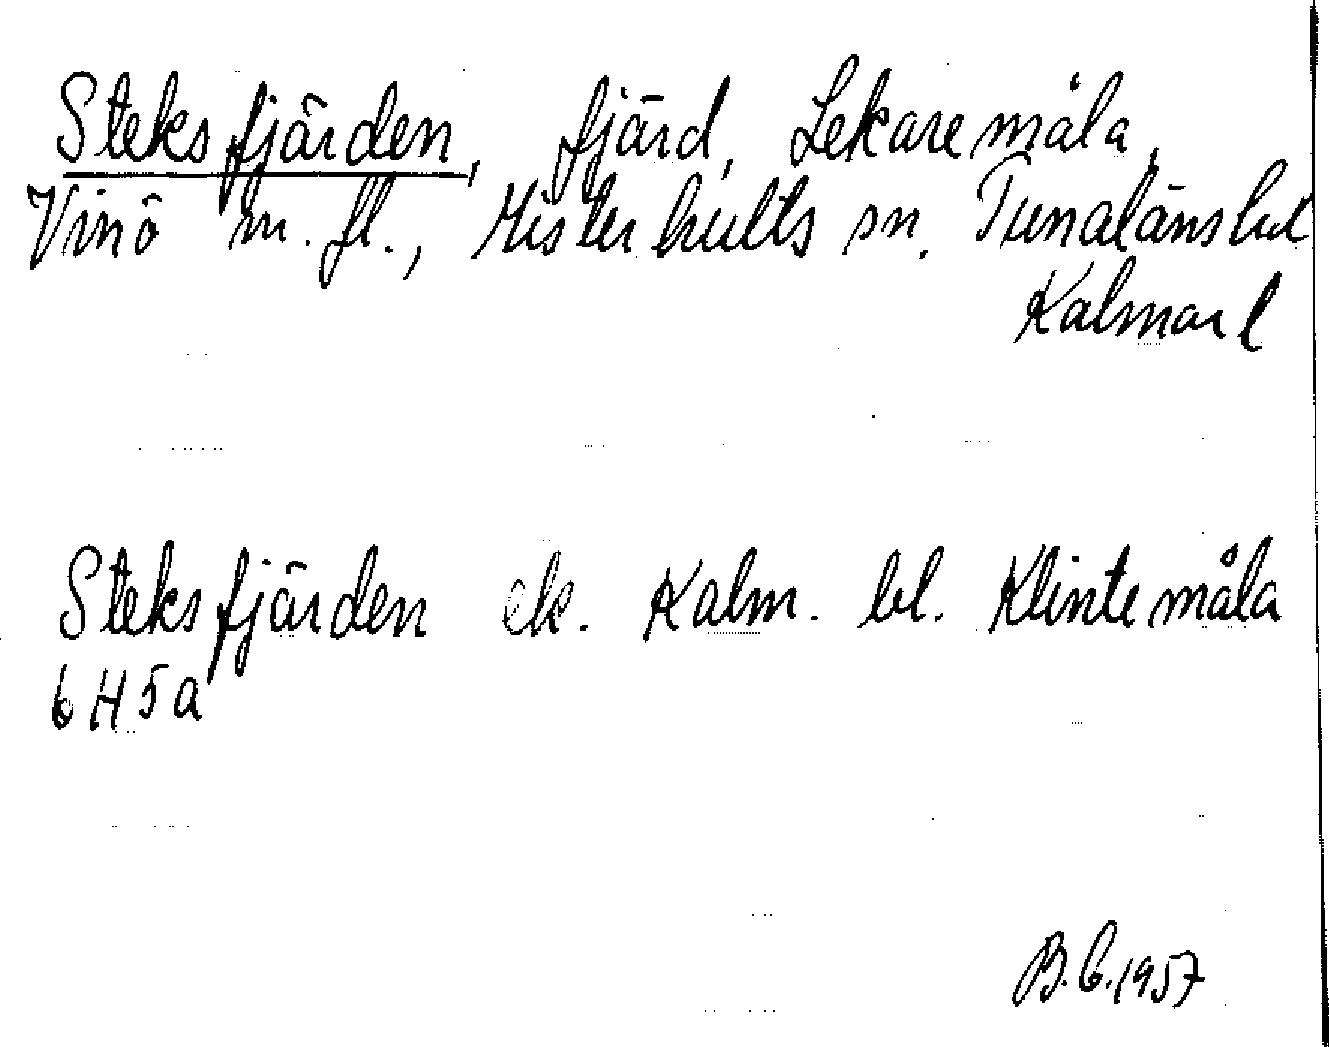 Steksfjärden, fjärd, Lekaremåla,
Vinö m. fl., Misterhults sn. Tunaläns hd
Kalmar l
Steksfjärden ek. Kalm. bl. Klintemåla
6H5a
B.C. 1957